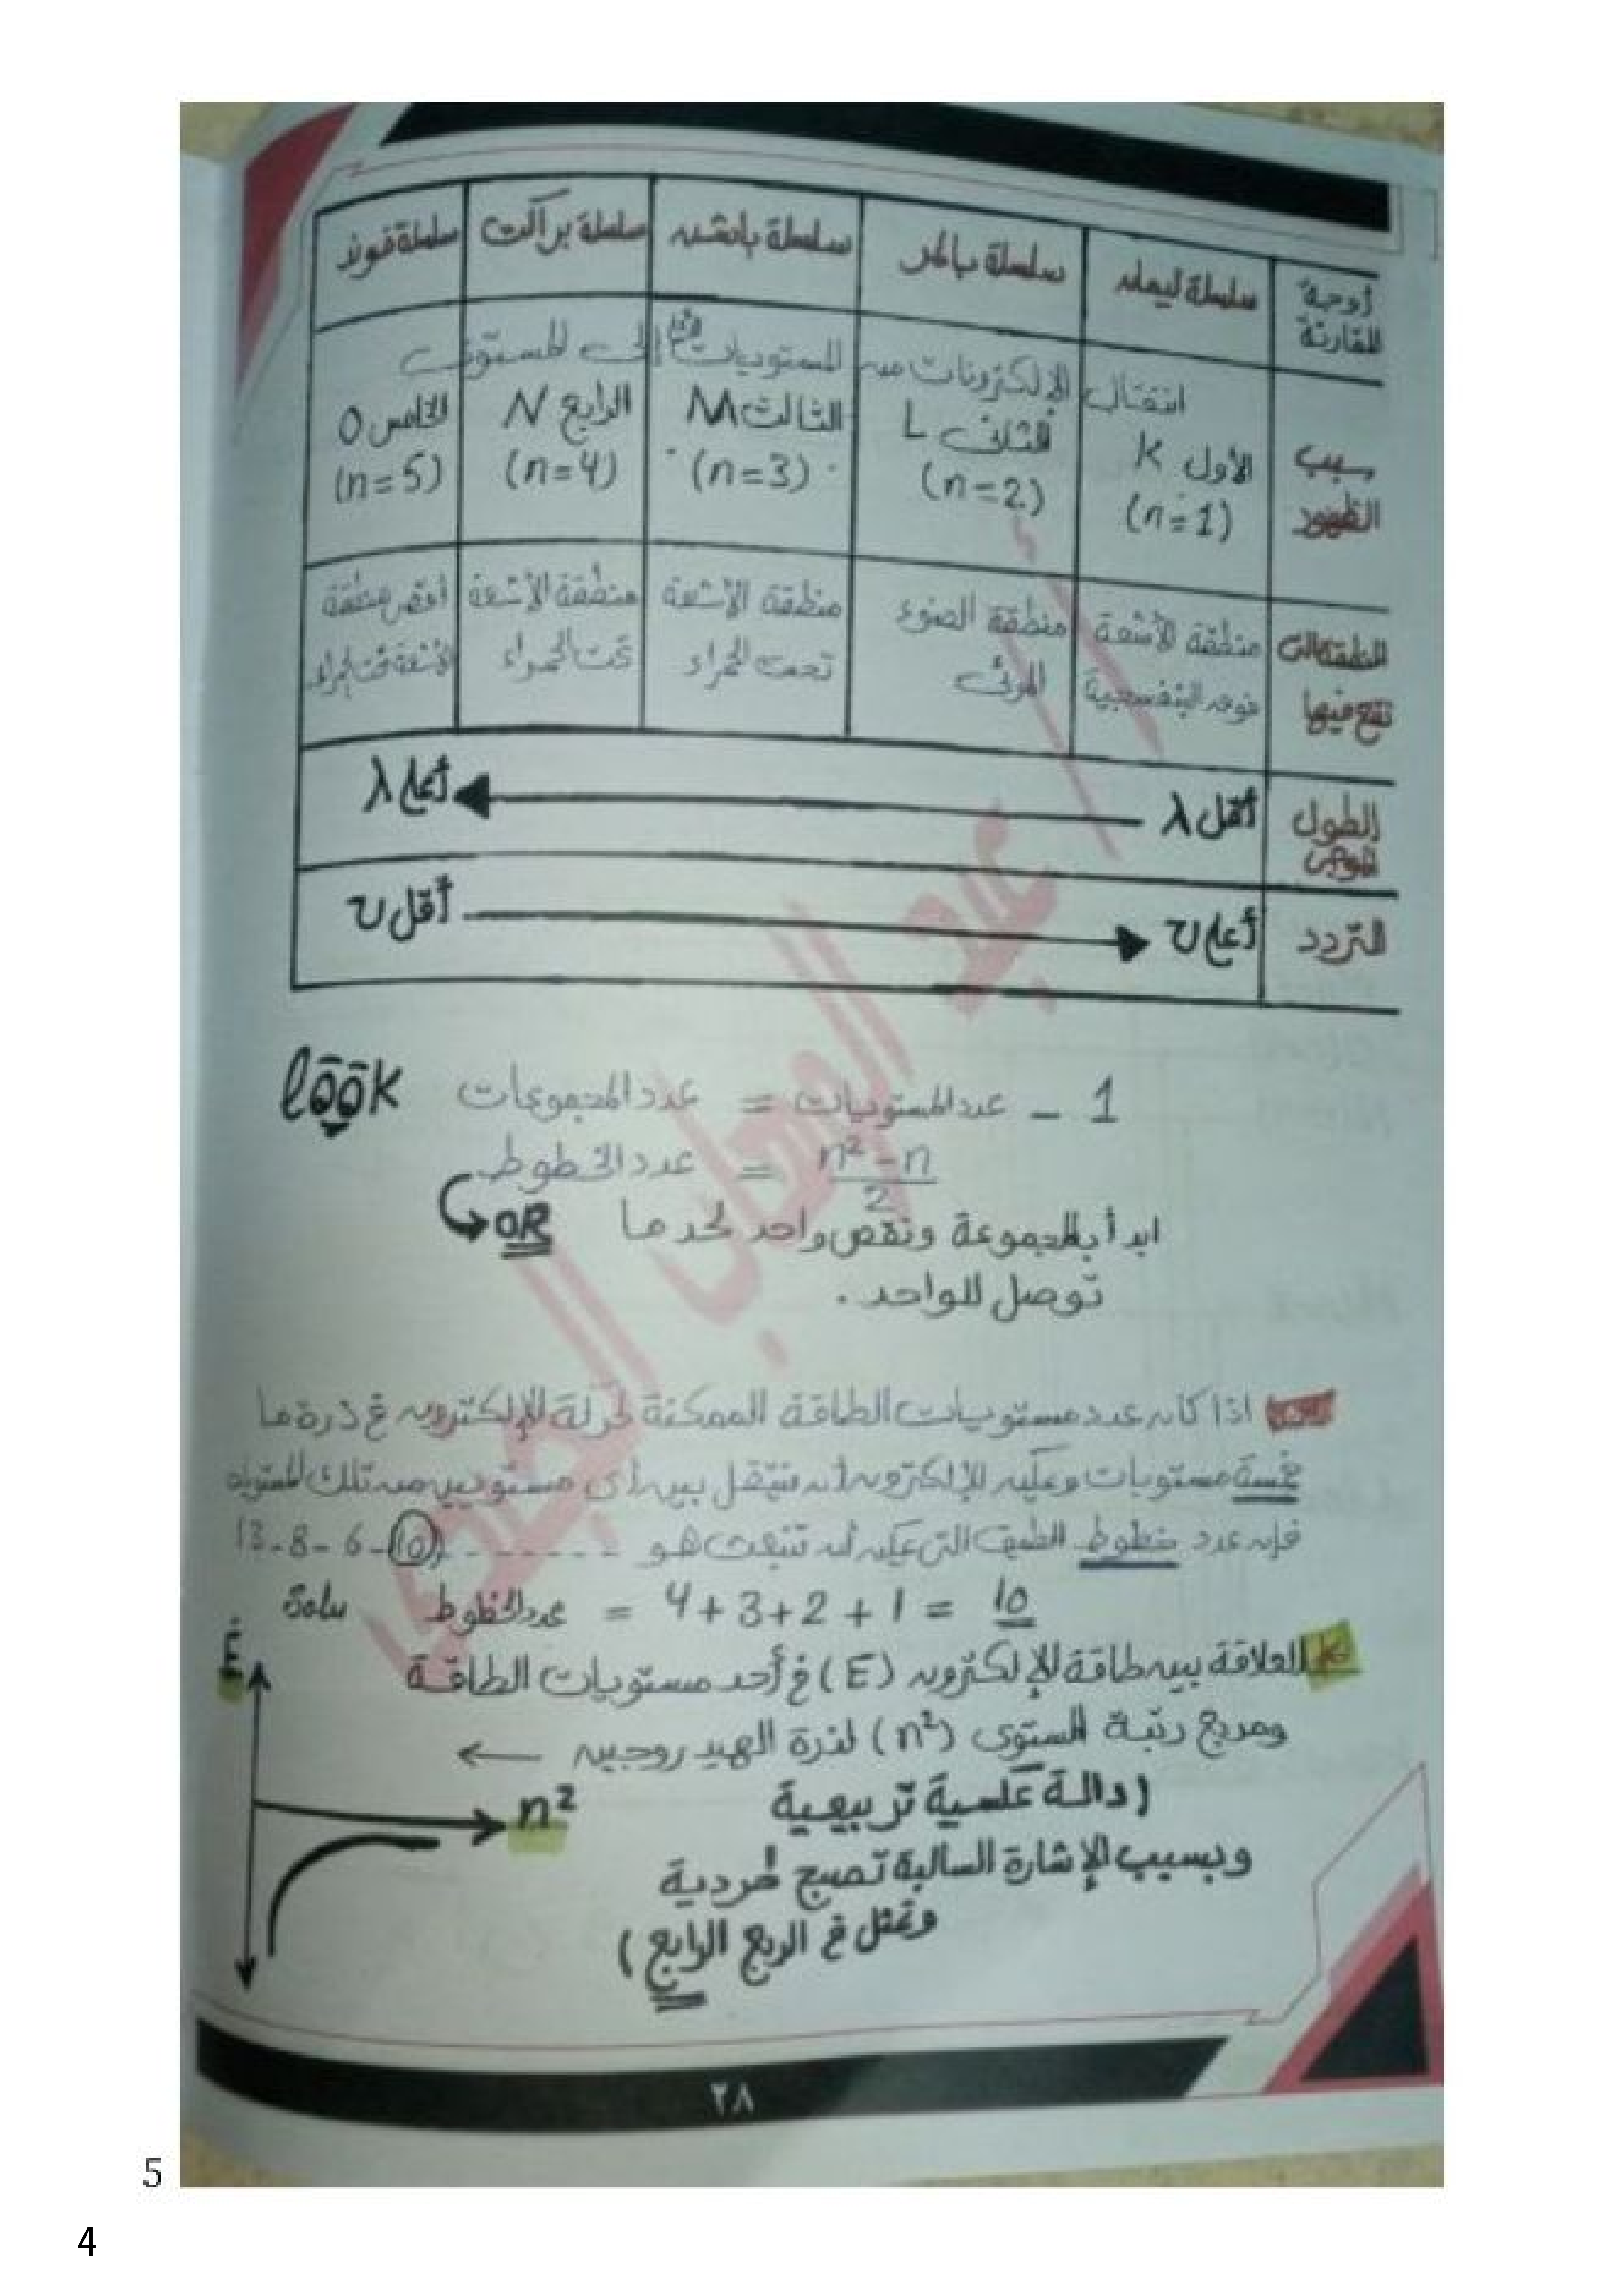 أوجه المقارنة
سلسلة ليمان
سلسلة بالمر
سلسلة باشن
سلسلة براكت
سلسلة فوند
سبب الظهور
انتقال الإلكترونات من المستويات الأعلى إلى المستوى
الأول K
(n=1)
الثانى L
(n=2)
الثالث M
(n=3)
الرابع N
(n=4)
الخامس O
(n=5)
المنطقة التى تقع فيها
منطقة الأشعة فوق البنفسجية
منطقة الضوء المرئى
منطقة الأشعة تحت الحمراء
منطقة الأشعة تحت الحمراء
أقصى منطقة الأشعة تحت الحمراء
الطول الموجى
أقل λ
أعلى λ
التردد
أعلى υ
أقل υ
look
عدد المجموعات = عدد المستويات - 1
عدد الخطوط = n² - n / 2
OR ابدأ بالمجموعة ونقص واحد لحد ما
توصل للواحد .
اذا كان عدد مستويات الطاقة الممكنة لحركة الإلكترون فى ذرة ما
خمسة مستويات ويمكن للإلكترون أن ينتقل بين أى مستويين من تلك المستويات
فإن عدد خطوط الطيف التى يمكن أن تنبعث هو -------- (10) - 6 - 8 - 13
Solu عدد الخطوط = 4 + 3 + 2 + 1 = 10
العلاقة بين طاقة الإلكترون (E) فى أحد مستويات الطاقة
ومربع رتبة المستوى (n²) لذرة الهيدروجين ←
(دالة عكسية تربيعية
وبسبب الإشارة السالبة تصبح طردية
وتمثل فى الربع الرابع)
E
n²
٢٨
5
4